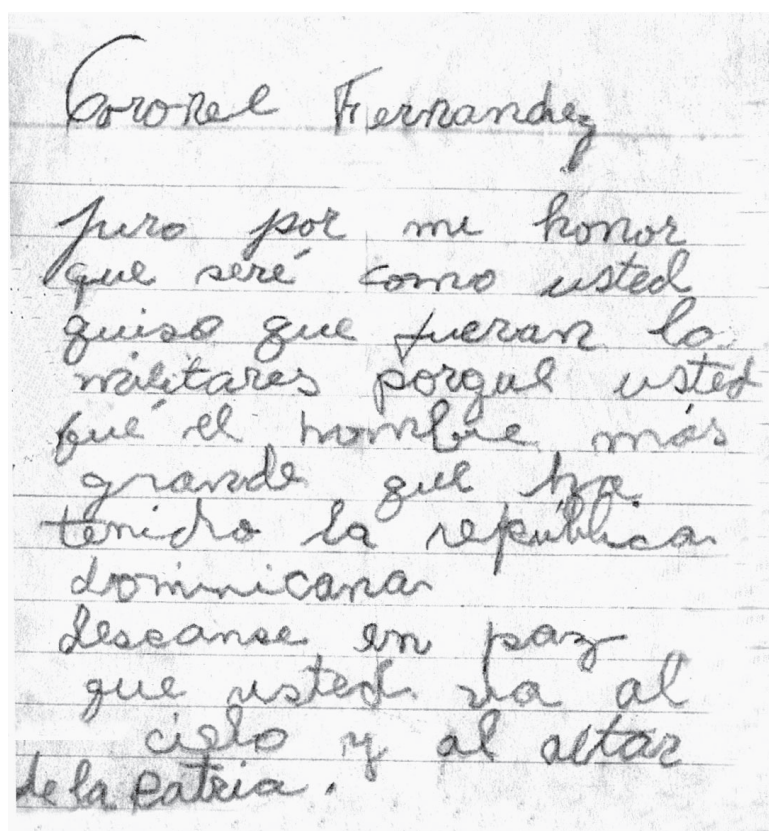 Coronel Fernandez
juro por mi honor
que seré como usted
quiso que fueran lo
militares porque usted
fué el hombre más
grande que ha
tenido la república
dominicana
descanse en paz
que usted va al
cielo y al altar
de la Patria.